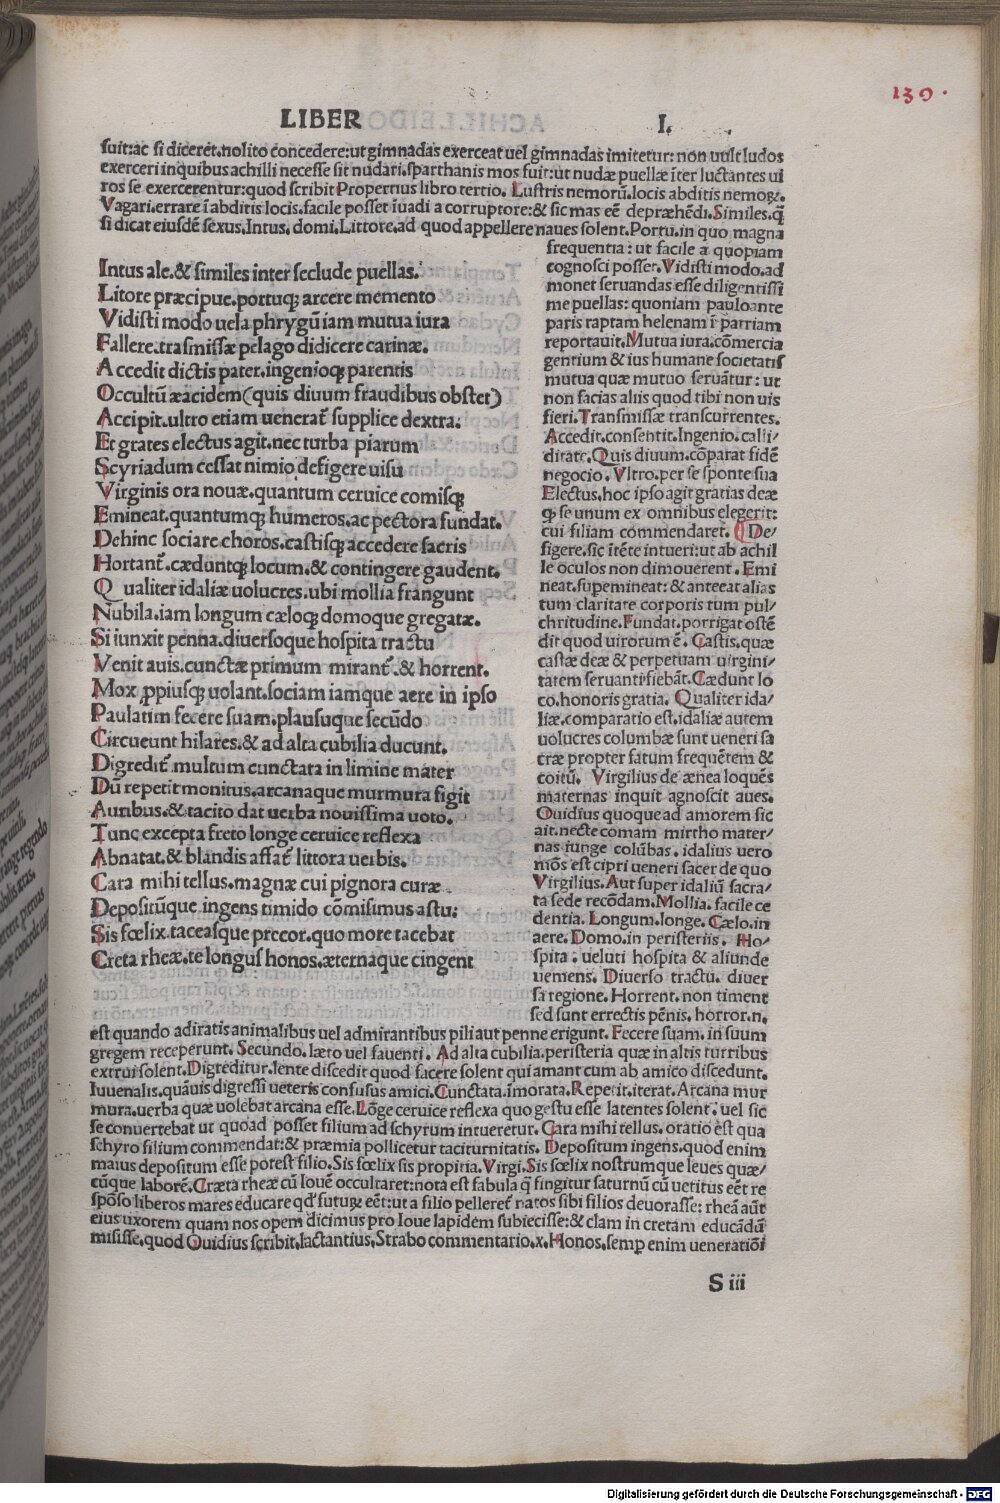 139.
LIBER I.
suit:ac si dicerēt.nolito cōcedere:ut gimnadas exerceat uel gimnadas imitetur: non uult ludos
exerceri inquibus achilli necesse sit nudari.sparthanis mos fuit:ut nudæ puellæ īter luctantes ui
ros se exercerentur:quod scribit Propertius libro tertio. Lustris nemorū.locis abditis nemoꝝ.
Vagari.errare ī abditis locis.facile posset īuadi a corruptore:& sic mas eē depræhēdi.Similes.q̄
si dicat eiusdē sexus.Intus. domi.Littore.ad quod appellere naues solent.Portu.in quo magna
Intus ale.& similes inter seclude puellas.
Litore præcipue.portuqꝫ arcere memento
Vidisti modo uela phrygū iam mutua iura
Fallere.trāsmissæ pelago didicere carinæ.
Accedit dictis pater.ingenioqꝫ parentis
Occultū æacidem(quis diuum fraudibus obstet)
Accipit.ultro etiam ueneraṫ supplice dextra.
Et grates electus agit.nec turba piarum
Scyriadum cessat nimio defigere uisu
Virginis ora nouæ.quantum ceruice comisqꝫ
Emineat.quantumqꝫ humeros.ac pectora fundat.
Dehinc sociare choros.castisqꝫ accedere sacris
Hortanṫ.cæduntqꝫ locum.& contingere gaudent.
Qualiter idaliæ uolucres.ubi mollia frangunt
Nubila.iam longum cæloqꝫ domoque gregatæ.
Si iunxit penna.diuersoque hospita tractu
Venit auis.cunctæ primum miranṫ.& horrent.
Mox ꝓpiusqꝫ uolant.sociam iamque aere in ipso
Paulatim fecere suam.plausuque secūdo
Circueunt hilares.& ad alta cubilia ducunt.
Digrediṫ multum cunctata in limine mater
Dū repetit monitus.arcanaque murmura figit
Auribus.& tacito dat uerba nouissima uoto.
Tunc excepta freto longe ceruice reflexa
Abnatat.& blandis affaṫ littora uerbis.
Cara mihi tellus.magnæ cui pignora curæ
Depositūque ingens timido cōmisimus astu:
Sis fœlix.taceasque precor.quo more tacebat
Creta rheæ.te longus honos.æternaque cingent
frequentia: ut facile a quopiam
cognosci posset.Vidisti modo.ad
monet seruandas esse diligentissi
me puellas: quoniam pauloante
paris raptam helenam ī patriam
reportauit.Mutua iura.cōmercia
gentium & ius humane societatis
mutua quæ mutuo seruātur: ut
non facias aliis quod tibi non uis
fieri.Transmissæ transcurrentes.
Accedit.consentit.Ingenio.calli/
ditate.Quis diuum.cōparat fidē
negocio.Vltro.per se sponte sua
Electus.hoc ipso agit gratias deæ
qꝫ se unum ex omnibus elegerit:
cui filiam cōmendaret. De/
figere.sic ītēte intueri:ut ab achil
le oculos non dimouerent.Emi
neat.supemineat: & anteeat alias
tum claritate corporis tum pul/
chritudine.Fundat.porrigat ostē
dit quod uirorum ē. Castis.quæ
castæ deæ & perpetuam uirgini/
tatem seruanti fiebāt.Cædunt lo
co.honoris gratia. Qualiter ida/
liæ.comparatio est.idaliæ autem
uolucres columbæ sunt ueneri sa
cræ propter fatum frequētem &
coitū. Virgilius de ænea loquēs
maternas inquit agnoscit aues.
Ouidius quoque ad amorem sic
ait.necte comam mirtho mater/
nas iunge colūbas. idalius uero
mōs est cipri ueneri sacer de quo
Virgilius.Aut super idaliū sacra/
ta sede recōdam.Mollia. facile ce
dentia. Longum.longe. Cælo.in
aere.Domo.in peristeriis. Ho/
spita. ueluti hospita & aliunde
uemens. Diuerso tractu. diuer
sa regione. Horrent.non timent
sed sunt errectis pēnis, horror.n.
est quando adiratis animalibus uel admirantibus pili aut penne erigunt.Fecere suam.in suum
gregem receperunt. Secundo. læto uel fauenti. Ad alta cubilia.peristeria quæ in altis turribus
extrui solent.Digreditur.lente discedit quod facere solent qui amant cum ab amico discedunt.
Iuuenalis.quāuis digressi ueteris confusus amici.Cunctata.īmorata.Repetit.iterat.Arcana mur
mura.uerba quæ uolebat arcana esse.Lōge ceruice reflexa quo gestu esse latentes solent: uel sic
se conuertebat ut quoad posset filium ad schyrum intueretur. Cara mihi tellus.oratio est qua
schyro filium commendat:& præmia pollicetur taciturnitatis. Depositum ingens.quod enim
maius depositum esse potest filio.Sis fœlix sis propitia.Virgi.Sis fœlix nostrumque leues quæ/
cūque laborē.Cræta rheæ cū Iouē occultaret:nota est fabula q̄ fingitur saturnū cū uetitus eēt re
spōso liberos mares educare qd̓ futuꝝ eēt:ut a filio pelleret̓ natos sibi filios deuorasse: rheā aūt
eius uxorem quam nos opem dicimus pro Ioue lapidem subiecisse:& clam in cretam educādū
misisse.quod Ouidius scribit.lactantius.Strabo commentario.x.Honos.semꝑ enim ueneratiōi
S iii
Digitalisierung gefördert durch die Deutsche Forschungsgemeinschaft - DFG